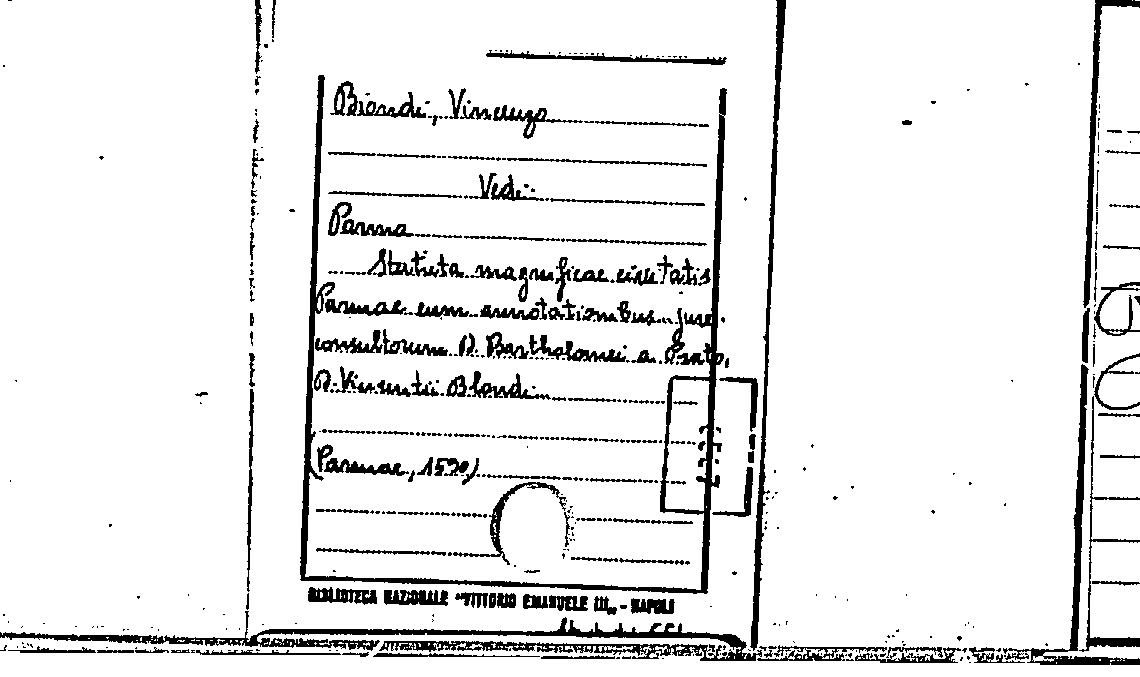 Biondi, Vincenzo
Vedi:
Parma
Statuta magnificae civitatis
Parmae cum annotationibus jure
consultorum D. Bartholomei a Prato,
D. Vincentii Blondi
(Parmae, 1590)
BIBLIOTECA NAZIONALE "VITTORIO EMANUELE III„ - NAPOLI